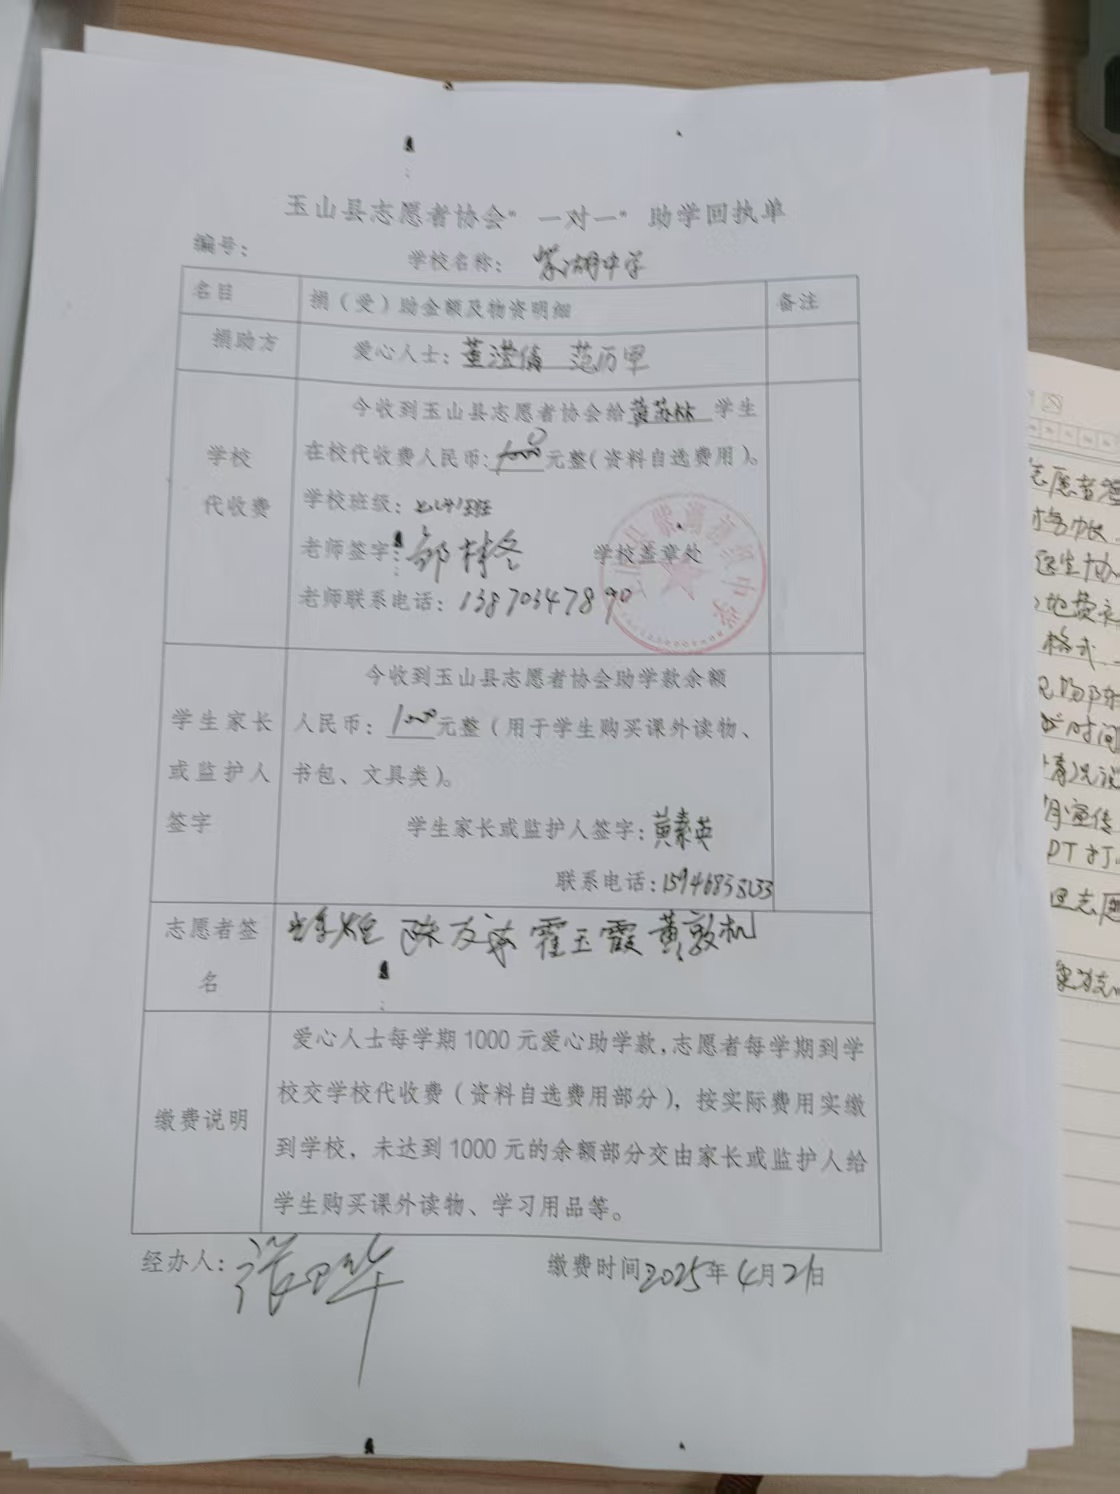 玉山县志愿者协会“一对一”助学回执单
编号：
学校名称：紫湖中学
名目
捐（受）助金额及物资明细
备注
捐助方
爱心人士：董滢倩 范厉甲
学校
代收费
今收到玉山县志愿者协会给黄苏林学生
在校代收费人民币：0元整（资料自选费用）。
学校班级：
老师签字：
学校盖章处
老师联系电话：13870347890
学生家长
或监护人
签字
今收到玉山县志愿者协会助学款余额
人民币：1000元整（用于学生购买课外读物、
书包、文具类）。
学生家长或监护人签字：黄素英
联系电话：15946835233
志愿者签
名
霍玉霞 黄敦机
缴费说明
爱心人士每学期1000元爱心助学款，志愿者每学期到学
校交学校代收费（资料自选费用部分），按实际费用实缴
到学校，未达到1000元的余额部分交由家长或监护人给
学生购买课外读物、学习用品等。
经办人：
缴费时间2025年4月21日